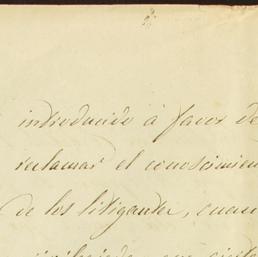 introducido à favor de
reclamar el conocimien
de los litigantes, cuan